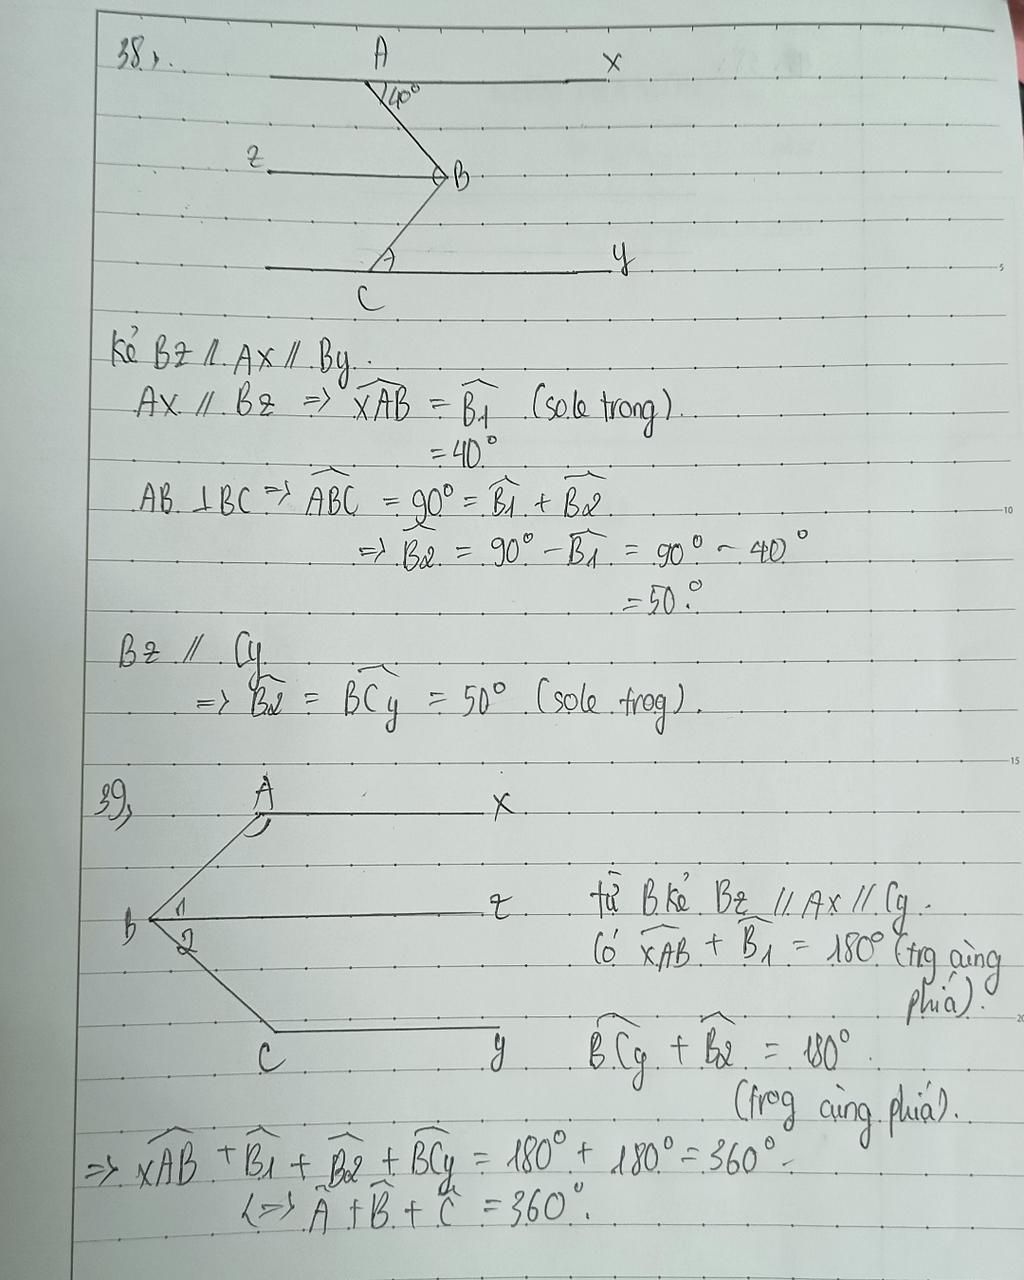 38,.
A
x
40°
z
B
y
C
kẻ Bz // Ax // By.
Ax // Bz => xAB = B1 (sole trong).
= 40°
AB ⊥ BC => ABC = 90° = B1 + B2
=> B2 = 90° - B1 = 90° - 40°
= 50°
Bz // Cy
=> B2 = BCy = 50° (sole trog).
39,
A
x
B
1
z
2
C
y
từ B kẻ Bz // Ax // Cy.
Có xAB + B1 = 180° (trg cùng
phía).
BCy + B2 = 180°.
(trog cùng phía).
=> xAB + B1 + B2 + BCy = 180° + 180° = 360°
<=> Â + B̂ + Ĉ = 360°.
5
10
15
20